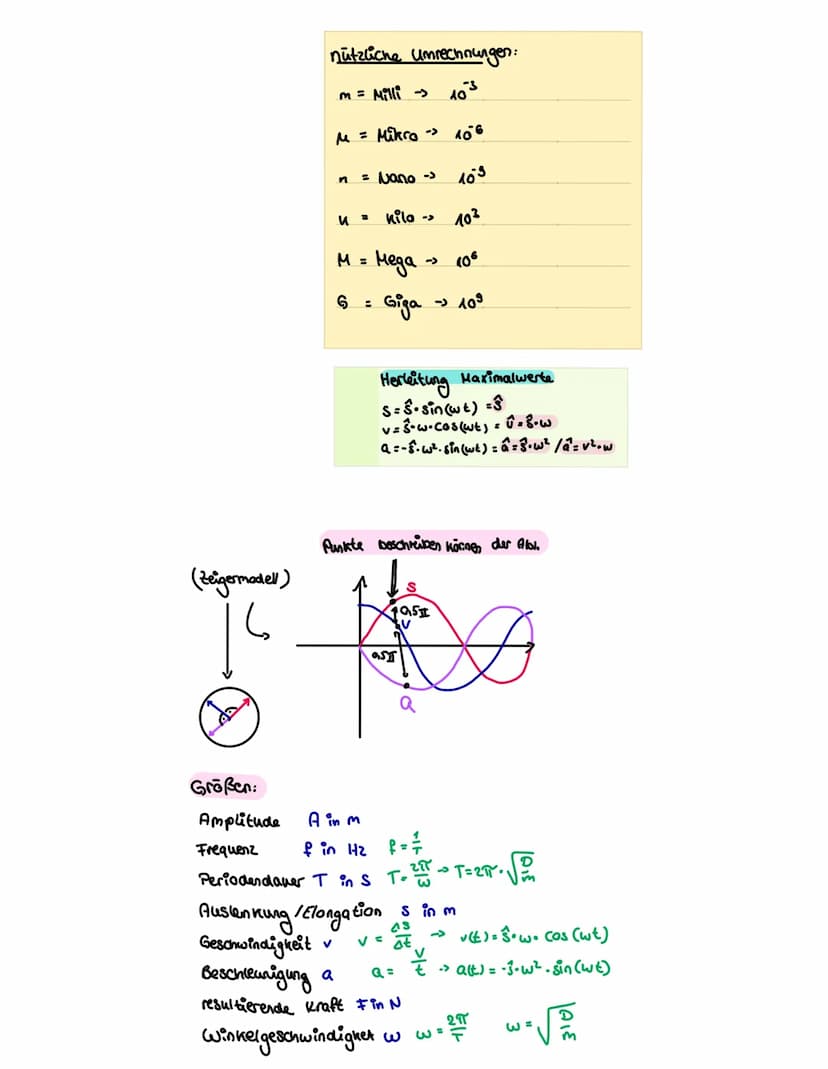 nützliche Umrechnungen:
m = Milli -> 10⁻³
μ = Mikro -> 10⁻⁶
n = Nano -> 10⁻⁹
k = Kilo -> 10³
M = Mega -> 10⁶
G = Giga -> 10⁹
Herleitung Maximalwerte
s = ŝ · sin(ωt) = ŝ
v = ŝ · ω · cos(ωt) = v̂ = ŝ · ω
a = -ŝ · ω² · sin(ωt) = â = ŝ · ω² / â = v² · ω
Punkte beschreiben können der Abl.
(Zeigermodell)
s
0,5π
v
0,5π
a
Größen:
Amplitude A in m
Frequenz f in Hz f = 1/T
Periodendauer T in s T = 2π/ω -> T = 2π · √(D/m)
Auslenkung/Elongation s in m
Geschwindigkeit v v = Δs/Δt -> v(t) = ŝ · ω · cos(ωt)
Beschleunigung a a = v/t -> a(t) = -ŝ · ω² · sin(ωt)
resultierende Kraft F in N
Winkelgeschwindigket ω ω = 2π/T ω = √(D/m)